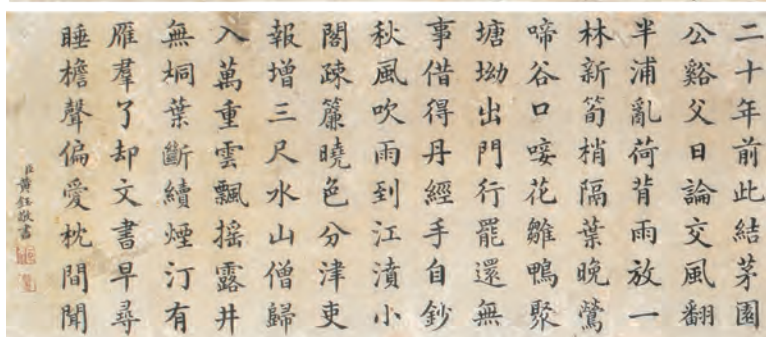 二十年前此結茅園
公谿父日論交風翻
半浦亂荷背雨放一
林新筍梢隔葉晚鶯
啼谷口唼花雛鴨聚
塘坳出門行罷還無
事借得丹經手自鈔
秋風吹雨到江濆小
閣疎簾曉色分津吏
報增三尺水山僧歸
入萬重雲飄摇露井
無桐葉斷續煙汀有
雁羣了却文書早尋
睡檐聲偏愛枕間聞
臣黄鉞敬書